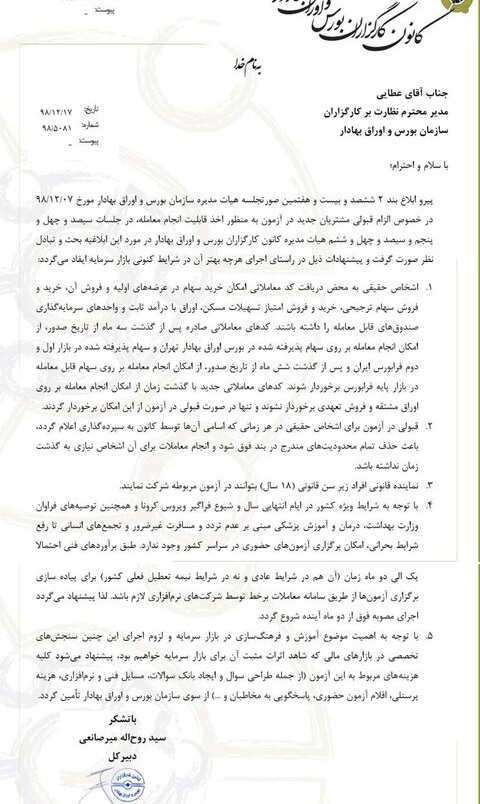 پیوست: _
کانون کارگزاران بورس و اوراق بهادار
به نام خدا
جناب آقای عطایی
مدیر محترم نظارت بر کارگزاران
سازمان بورس و اوراق بهادار
تاریخ: ۹۸/۱۲/۱۷
شماره: ۹۸/۵۰۸۱
پیوست: _
با سلام و احترام؛
پیرو ابلاغ بند ۲ ششصد و بیست و هفتمین صورتجلسه هیات مدیره سازمان بورس و اوراق بهادار مورخ ۹۸/۱۲/۰۷
در خصوص الزام قبولی مشتریان جدید در آزمون به منظور اخذ قابلیت انجام معامله، در جلسات سیصد و چهل و
پنجم و سیصد و چهل و ششم هیات مدیره کانون کارگزاران بورس و اوراق بهادار در مورد این ابلاغیه بحث و تبادل
نظر صورت گرفت و پیشنهادات ذیل در راستای اجرای هرچه بهتر آن در شرایط کنونی بازار سرمایه ایفاد می‌گردد:
۱. اشخاص حقیقی به محض دریافت کد معاملاتی امکان خرید سهام در عرضه‌های اولیه و فروش آن، خرید و
فروش سهام ترجیحی، خرید و فروش امتیاز تسهیلات مسکن، اوراق با درآمد ثابت و واحدهای سرمایه‌گذاری
صندوق‌های قابل معامله را داشته باشند. کدهای معاملاتی صادره پس از گذشت سه ماه از تاریخ صدور، از
امکان انجام معامله بر روی سهام پذیرفته شده در بورس اوراق بهادار تهران و سهام پذیرفته شده در بازار اول و
دوم فرابورس ایران و پس از گذشت شش ماه از تاریخ صدور، از امکان معامله بر روی سهام قابل معامله
در بازار پایه فرابورس برخوردار شوند. کدهای معاملاتی جدید با گذشت زمان از امکان انجام معامله بر روی
اوراق مشتقه و فروش تعهدی برخوردار نشوند و تنها در صورت قبولی در آزمون از این امکان برخوردار گردند.
۲. قبولی در آزمون برای اشخاص حقیقی در هر زمانی که اسامی آن‌ها توسط کانون به سپرده‌گذاری اعلام گردد،
باعث حذف تمام محدودیت‌های مندرج در بند فوق شود و انجام معاملات برای آن اشخاص نیازی به گذشت
زمان نداشته باشد.
۳. نماینده قانونی افراد زیر سن قانونی (۱۸ سال) بتوانند در آزمون مربوطه شرکت نمایند.
۴. با توجه به شرایط ویژه کشور در ایام انتهایی سال و شیوع فراگیر ویروس کرونا و همچنین توصیه‌های فراوان
وزارت بهداشت، درمان و آموزش پزشکی مبنی بر عدم تردد و مسافرت غیرضرور و تجمع‌های انسانی تا رفع
شرایط بحرانی، امکان برگزاری آزمون‌های حضوری در سراسر کشور وجود ندارد. طبق برآوردهای فنی احتمالا
یک الی دو ماه زمان (آن هم در شرایط عادی و نه در شرایط نیمه تعطیل فعلی کشور) برای پیاده سازی
برگزاری آزمون‌ها از طریق سامانه معاملات برخط توسط شرکت‌های نرم‌افزاری لازم باشد. لذا پیشنهاد می‌گردد
اجرای مصوبه فوق از دو ماه آینده شروع گردد.
۵. با توجه به اهمیت موضوع آموزش و فرهنگ‌سازی در بازار سرمایه و لزوم اجرای این چنین سنجش‌های
تخصصی در بازارهای مالی که شاهد اثرات مثبت آن برای بازار سرمایه خواهیم بود، پیشنهاد می‌شود کلیه
هزینه‌های مربوط به این آزمون (از جمله طراحی سوال و ایجاد بانک سوالات، مسایل فنی و نرم‌افزاری، هزینه
پرسنلی، اقلام آزمون حضوری، پاسخگویی به مخاطبان و ...) از سوی سازمان بورس و اوراق بهادار تأمین گردد.
باتشکر
سید روح‌اله میرصانعی
دبیرکل